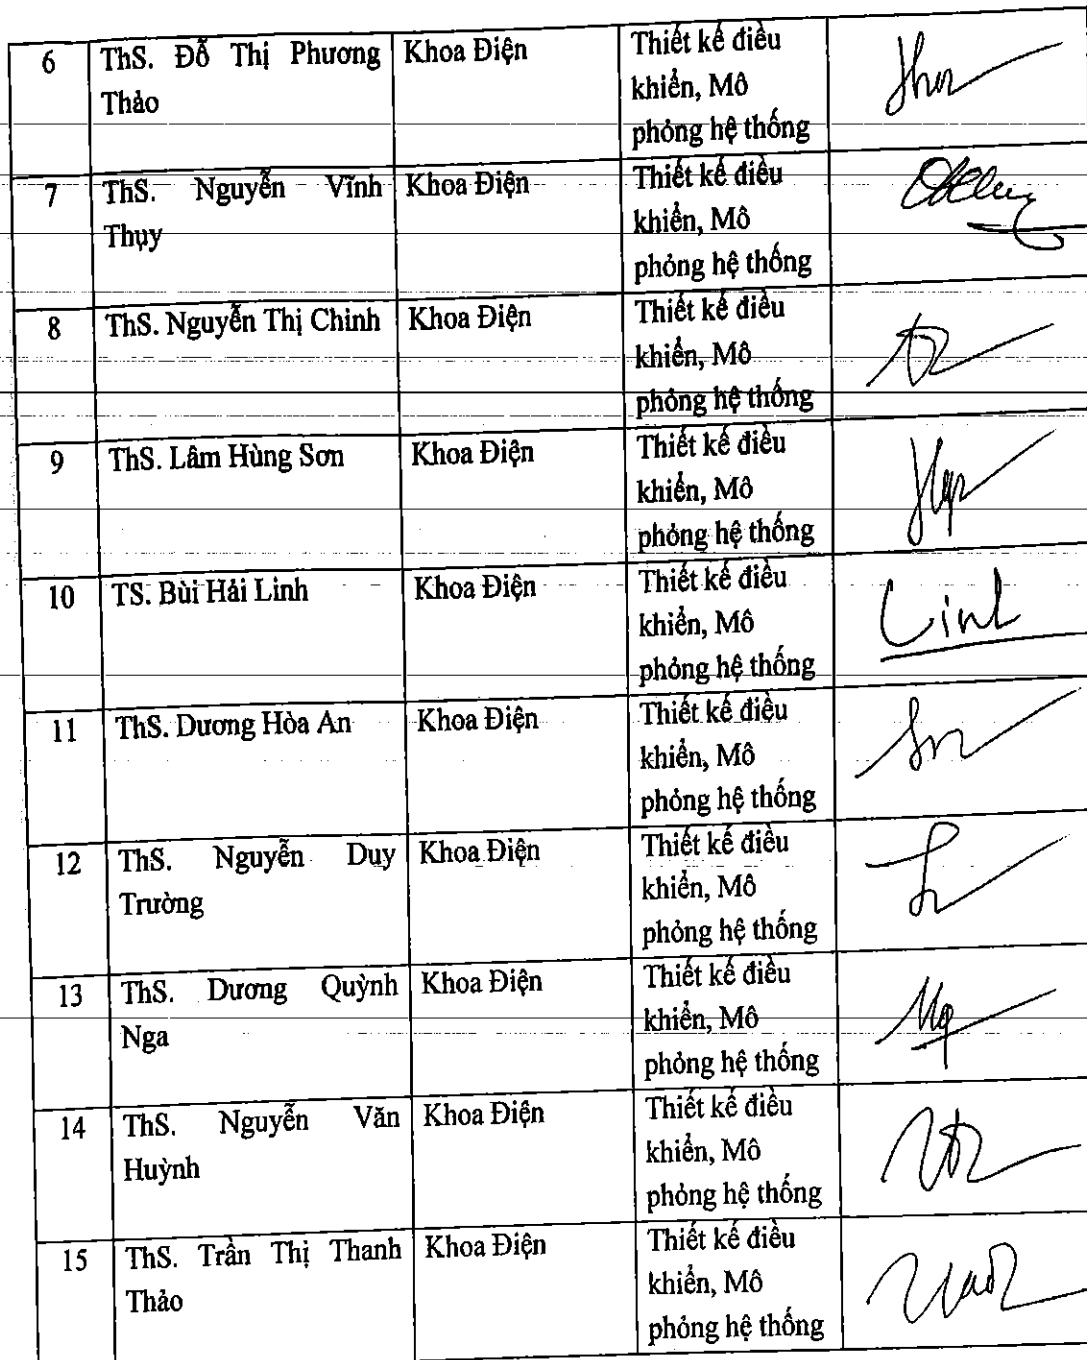 6 ThS. Đỗ Thị Phương Khoa Điện Thiết kế điều
Thảo khiển, Mô
phỏng hệ thống
7 ThS. Nguyễn Vĩnh Khoa Điện Thiết kế điều
Thụy khiển, Mô
phỏng hệ thống
8 ThS. Nguyễn Thị Chinh Khoa Điện Thiết kế điều
khiển, Mô
phỏng hệ thống
9 ThS. Lâm Hùng Sơn Khoa Điện Thiết kế điều
khiển, Mô
phỏng hệ thống
10 TS. Bùi Hải Linh Khoa Điện Thiết kế điều
khiển, Mô Linh
phỏng hệ thống
11 ThS. Dương Hòa An Khoa Điện Thiết kế điều
khiển, Mô
phỏng hệ thống
12 ThS. Nguyễn Duy Khoa Điện Thiết kế điều
Trường khiển, Mô
phỏng hệ thống
13 ThS. Dương Quỳnh Khoa Điện Thiết kế điều
Nga khiển, Mô
phỏng hệ thống
14 ThS. Nguyễn Văn Khoa Điện Thiết kế điều
Huỳnh khiển, Mô
phỏng hệ thống
15 ThS. Trần Thị Thanh Khoa Điện Thiết kế điều
Thảo khiển, Mô
phỏng hệ thống